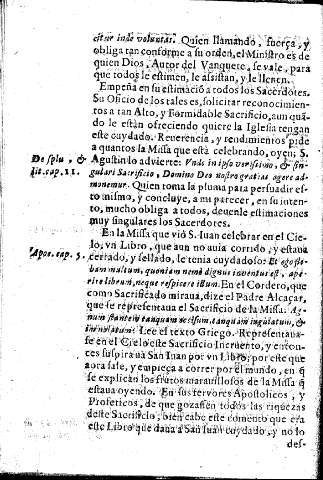 citur inde voluntas. Quien llamando, fuerça, y
obliga tan conforme a su orden, el Ministro es de
quien Dios, Autor del Vanguere, se vale, para
que todos le estimen, le assistan, y le llenen.
Empeña en su estimació a todos los Sacerdotes.
Su Oficio de los tales es, solicitar reconocimien-
tos a tan Alto, y Formidable Sacrificio, aun quā-
do le están ofreciendo quiere la Iglesia tengan
este cuydado. Reverencia, y rendimientos pide
a quantos la Missa que está celebrando, oyen; S.
De spiu, & lit. cap. 11.
Agustin lo advierte: Vnde in ipso verissimo, & sin-
gulari Sacrificio, Domino Deo nostro gratias agere ad-
monemur. Quien toma la pluma para persuadir es-
to mismo, y concluye, a mi parecer, su inten-
to, mucho obliga a todos, deuenle estimaciones
muy singulares los Sacerdotes.
En la Missa que vió S. Iuan celebrar en el Cie-
lo, vn Libro, que aun no auia corrido, y estaua
Apoc. cap. 5.
cerrado, y sellado, le tenia cuydadoso: Et ego fle-
bam multum, quoniam nemo dignus inuentus est, ape-
rire librum, neque respicere illum. En el Cordero, que
como Sacrificado miraua, dize el Padre Alcaçar,
que se representaua el Sacrificio de la Missa: Ag-
num stantem tanquam occisum, tanquam iugulatum, &
immolatum: Lee el texto Griego. Representaua-
se en el Cielo este Sacrificio Incruento, y enton-
ces suspiraua San Iuan por vn Libro, por este que
aora sale, y empieça a correr por el mundo, en q̄
se explicàn los frutos marauillosos de la Missa q̄
estaua oyendo. En sus fervores Apostolicos, y
Profeticos, de que gozassen todos las riquezas
deste Sacrificio, bien cabe este comento que era
este Libro que daua a San Iuan cuydado, y no lo
des-